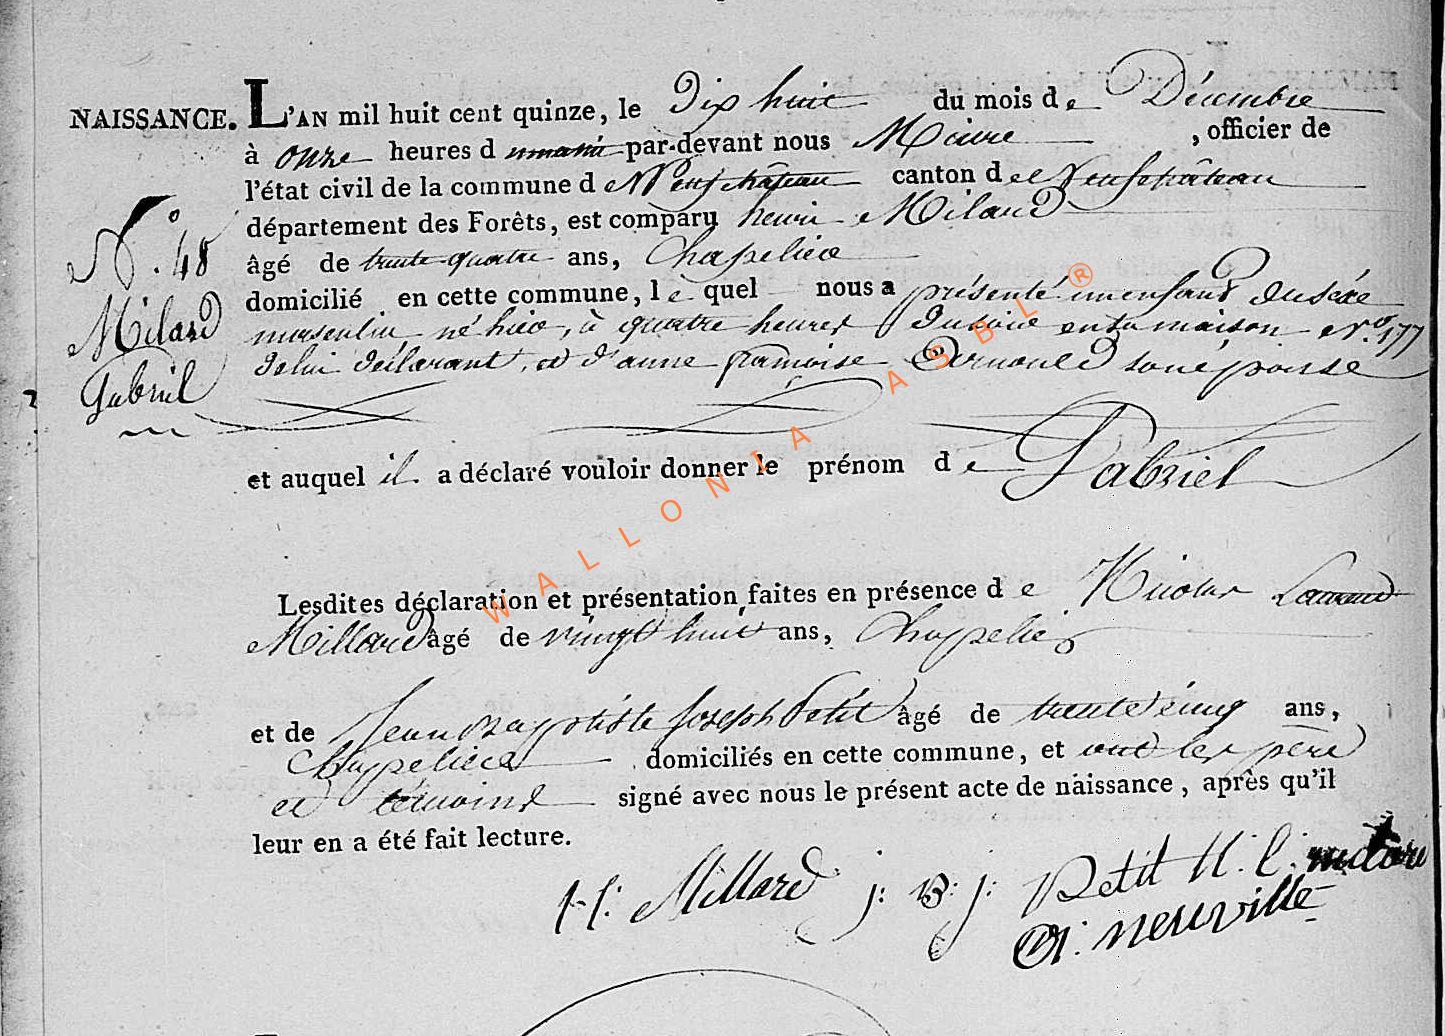 NAISSANCE. L'AN mil huit cent quinze, le Dix huit du mois de Décembre
à onze heures d par-devant nous Maire, officier de
l'état civil de la commune de Neufchâteau canton de Neufchâteau
département des Forêts, est comparu henri Milard
N.° 48 âgé de trente quatre ans, Chapelier
Milard domicilié en cette commune, le quel nous a présenté un enfant du sexe
masculin né hier, à quatre heures du soir en sa maison N.° 177
Gabriel de lui déclarant, et d'anne françoise Arnould son épouse
et auquel il a déclaré vouloir donner le prénom de Gabriel
Lesdites déclaration et présentation faites en présence de Nicolas
Millard âgé de vingt huit ans, Chapelier
et de Jean Baptiste Joseph Petit âgé de trente cinq ans,
Chapelier domiciliés en cette commune, et ont les père
et témoins signé avec nous le présent acte de naissance, après qu'il
leur en a été fait lecture.
H: Millard j: B: j: Petit N. l.
neuville
WALLONIA ASBL ®